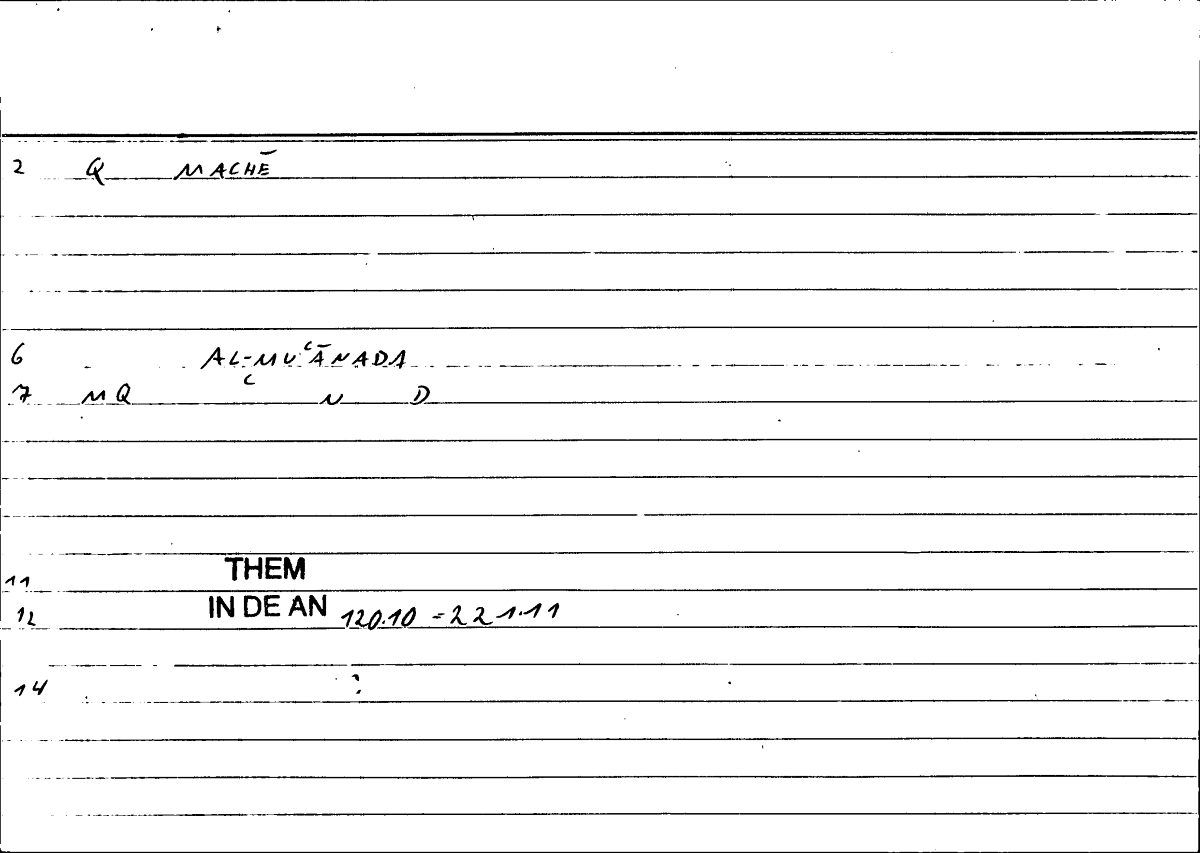 2 Q MACHĒ
6 AL-MUʿĀNADA
7 MQ ʿ N D
11 THEM
12 IN DE AN 120.10 - 221.11
14